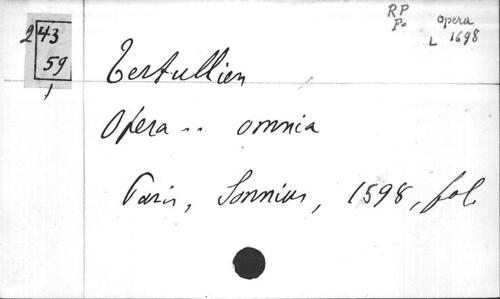 RP opera
Pe L 1698
2 43
59
Tertullien
Opera .. omnia
Paris, Sonnius, 1598, fol.